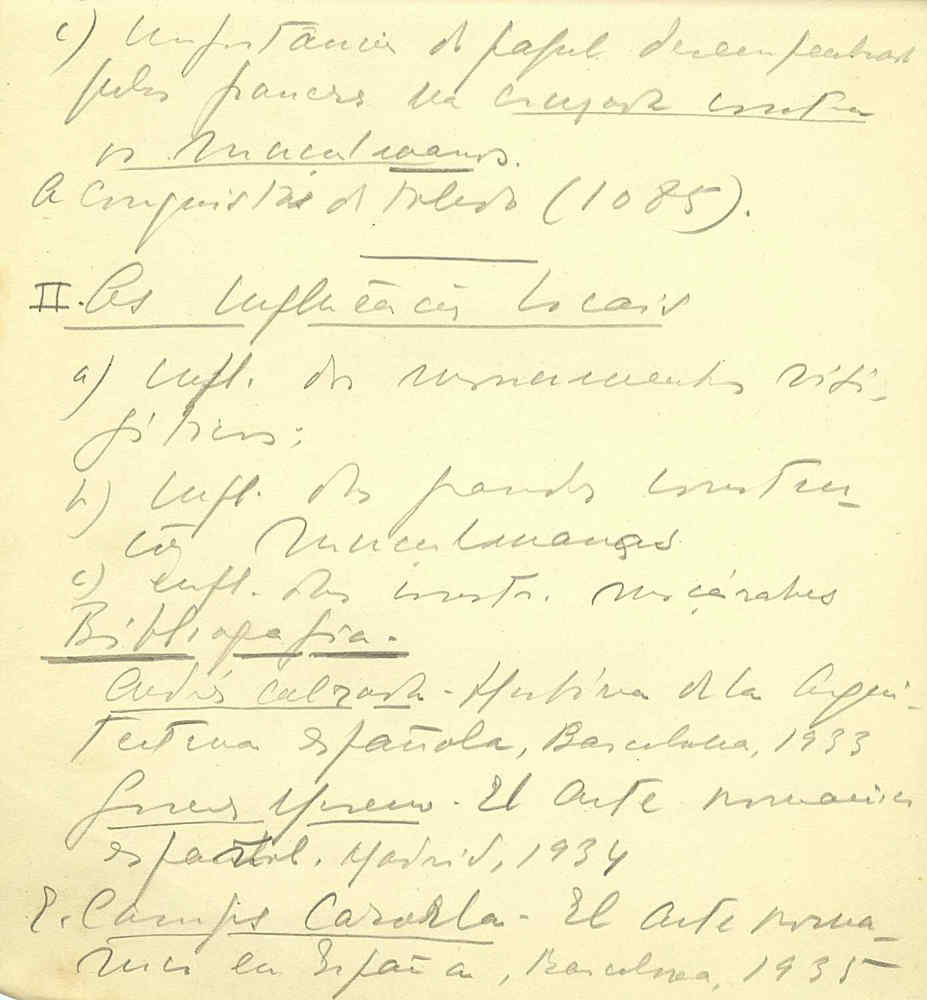 c) Importância do papel desempenhado
pelos franceses na cruzada contra
os muculmanos.
A conquista de Toledo (1085).
II. As Influências locais
a) infl. dos monumentos visi-
góticos;
b) infl. das grandes constru-
ções muculmanas
c) infl. das constr. moçárabes
Bibliografia.
Andrés Calzada - Historia de la Arqui-
tectura española, Barcelona, 1933
Gomez Moreno - El Arte romanico
español. Madrid, 1934
E. Camps Cazorla - El arte roma-
nico en España, Barcelona, 1935